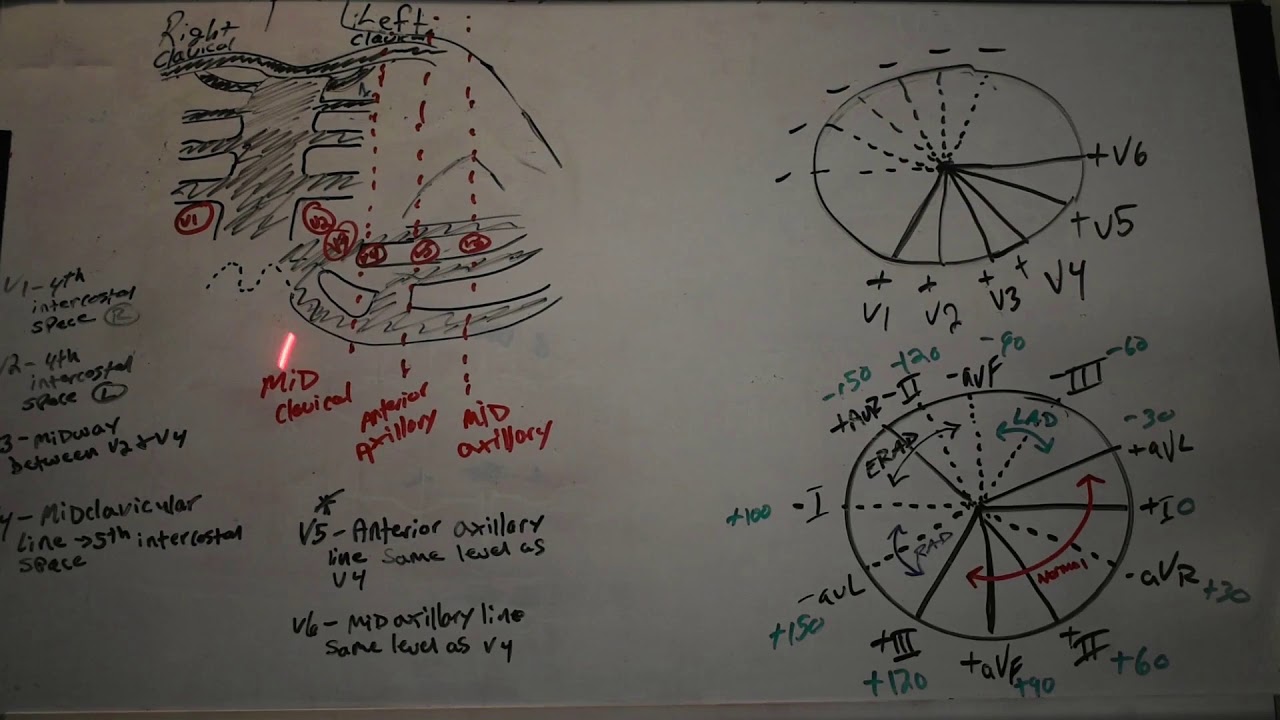 Right
clavical
Left
clavical
V1
V2
V3
V4
V5
V6
MiD
clavical
Anterior
Axillary
MiD
axillory
V1-4th
intercostal
space R
V2-4th
intercostal
space L
3-Midway
between V2 & V4
4-MiDclavicular
line → 5th intercostal
space
*
V5-Anterior axillory
line same level as
V4
V6-MiD axillory line
same level as V4
- -
-
-
-
-
+V6
+V5
+ + + +
V1 V2 V3 V4
-150 -120 -90 -60
+AVR -II -avF -III
-30
+avL
ERAD LAD
+100 -I +I0
RAD
Normal
-avL -aVR +30
+150
+III +aVF +II
+120 +90 +60